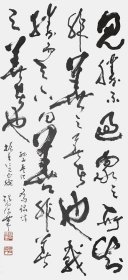 見勝不過眾人之所知
非善之善者也戰
勝而天下曰善非善
之善者也